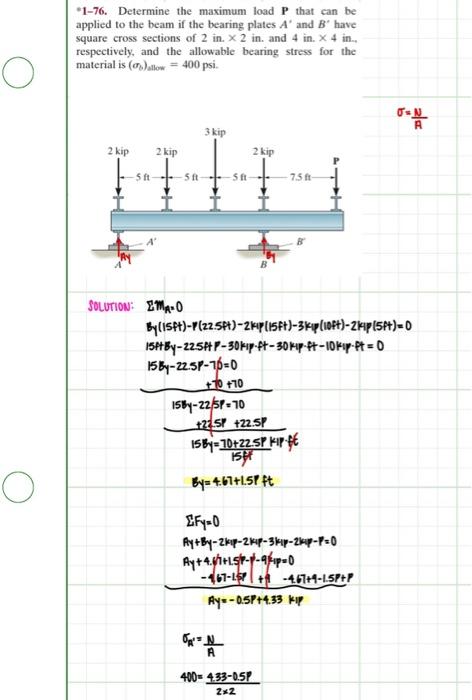 *1–76. Determine the maximum load P that can be
applied to the beam if the bearing plates A' and B' have
square cross sections of 2 in. × 2 in. and 4 in. × 4 in.,
respectively, and the allowable bearing stress for the
material is (σb)allow = 400 psi.
σ = N
A
3 kip
2 kip 2 kip 2 kip
P
5 ft 5 ft 5 ft 7.5 ft
A' B'
Ay By
A B
SOLUTION: ΣMA=0
By(15ft)-P(22.5ft)-2kip(15ft)-3kip(10ft)-2kip(5ft)=0
15ftBy-22.5ft P-30kip·ft-30kip·ft-10kip·ft=0
15By-22.5P-70=0
+70 +70
15By-22.5P=70
+22.5P +22.5P
15By=70+22.5P kip·ft
15ft
By=4.67+1.5P ft
ΣFy=0
Ay+By-2kip-2kip-3kip-2kip-P=0
Ay+4.67+1.5P-P-9kip=0
-4.67-1.5P +9 -4.67+9-1.5P+P
Ay=-0.5P+4.33 kip
σA'= N
A
400= 4.33-0.5P
2×2